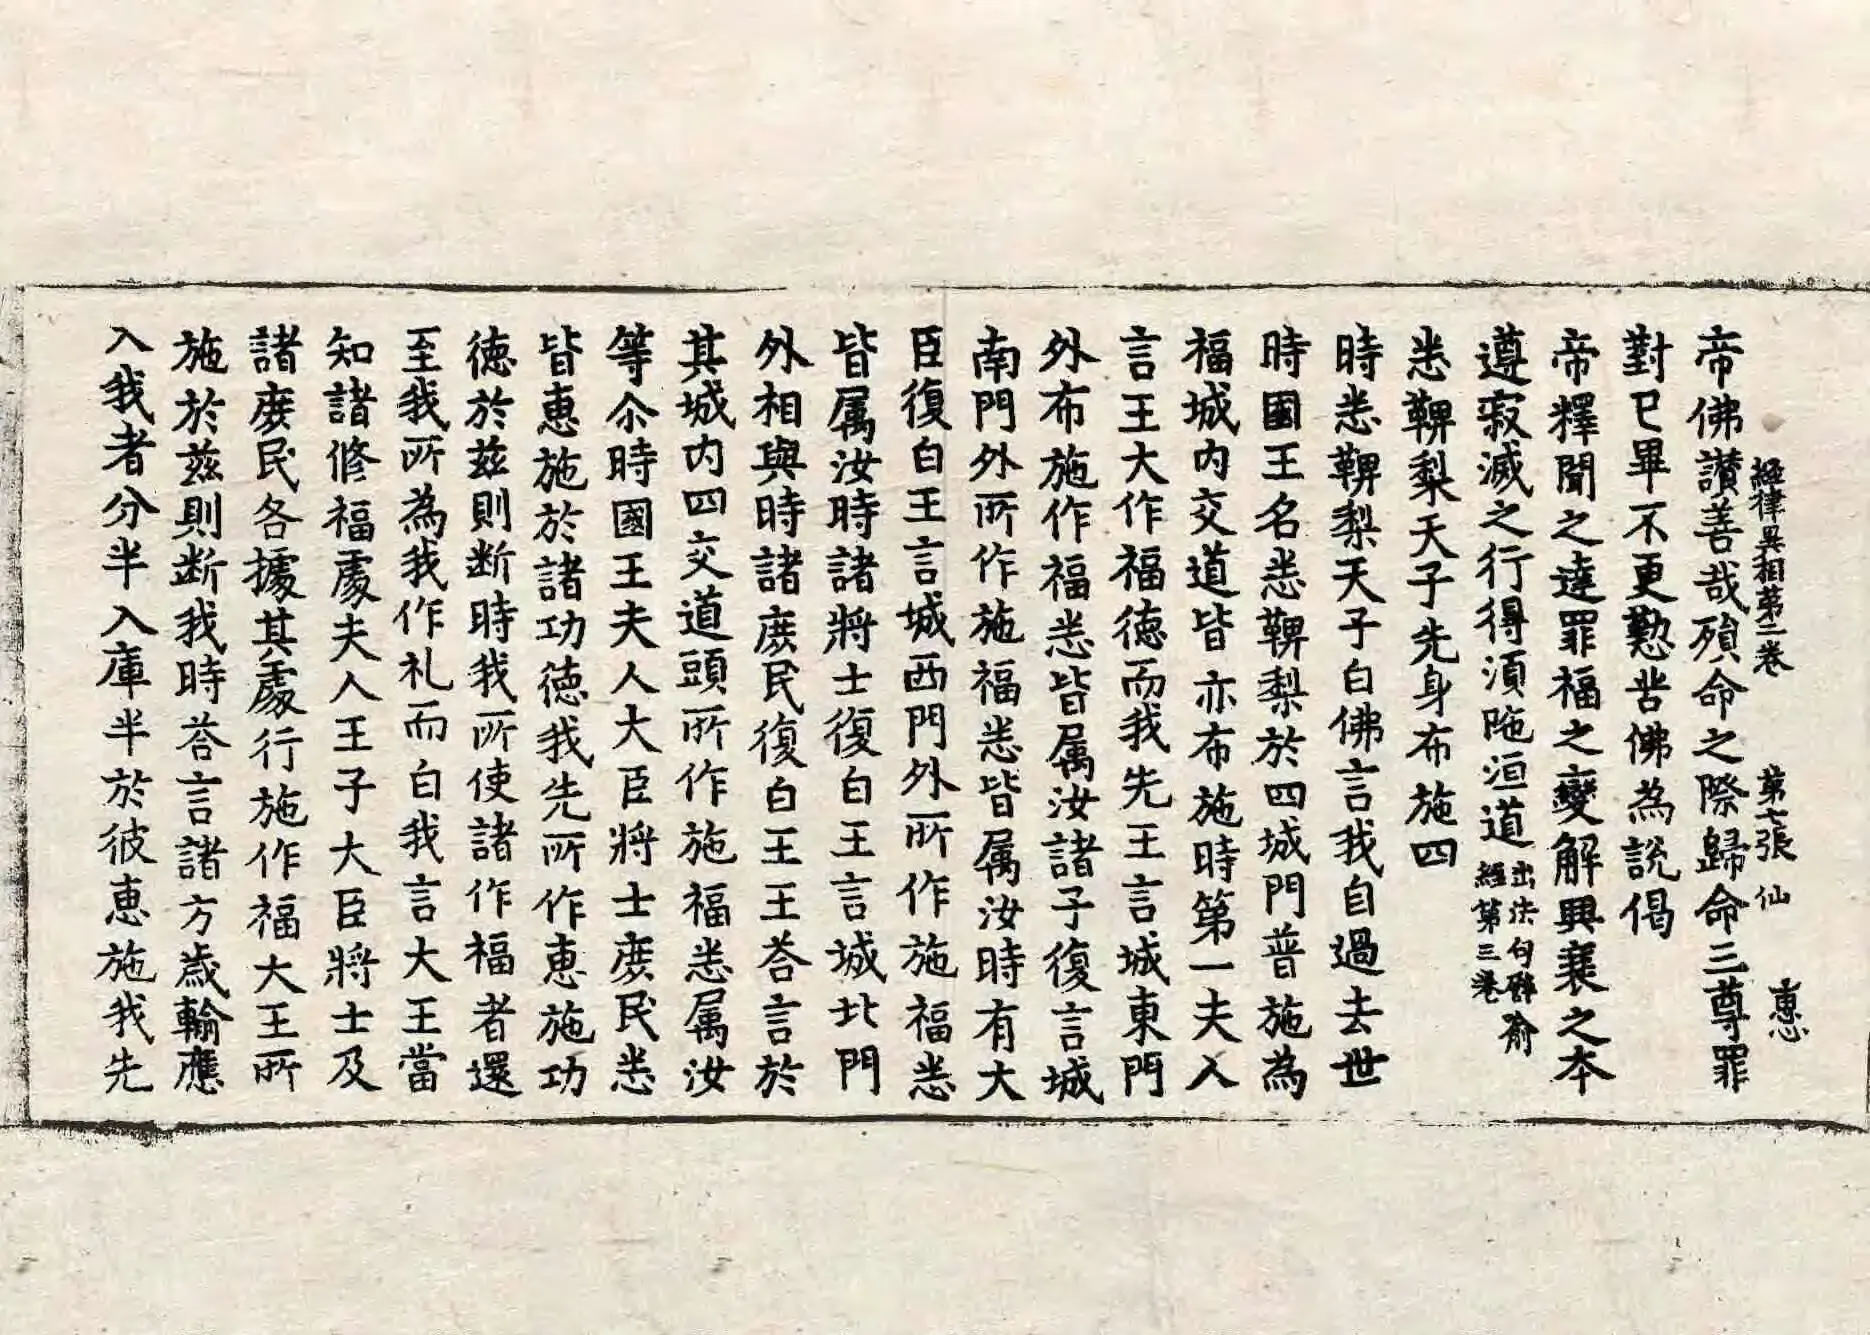 經律異相第二卷　第七張　仙　惠
帝佛讚善哉殞命之際歸命三尊罪
對已畢不更懃苦佛為說偈
帝釋聞之達罪福之變解興衰之本
遵寂滅之行得湏陁洹道出法句譬喻
經第三卷
悉鞞梨天子先身布施四
時悉鞞梨天子白佛言我自過去世
時國王名悉鞞梨於四城門普施為
福城内交道皆亦布施時第一夫人
言王大作福德而我先王言城東門
外布施作福悉皆属汝諸子復言城
南門外所作施福悉皆属汝時有大
臣復白王言城西門外所作施福悉
皆属汝時諸將士復白王言城北門
外相與時諸庻民復白王王荅言於
其城内四交道頭所作施福悉属汝
等尒時國王夫人大臣將士庻民悉
皆惠施於諸功德我先所作惠施功
德於兹則断時我所使諸作福者還
至我所為我作礼而白我言大王當
知諸修福處夫人王子大臣將士及
諸庻民各據其處行施作福大王所
施於兹則断我時荅言諸方歲輸應
入我者分半入庫半於彼惠施我先